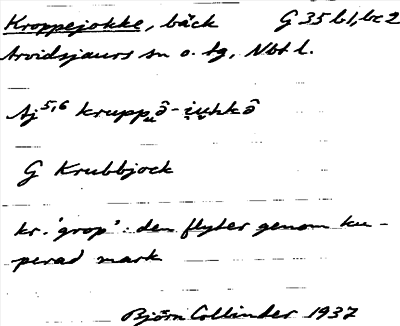 Kroppejokke, bäck G 35 b1, bc2
Arvidsjaurs sn o. tg, Nbt l.
Aj 5,6 kruppₐ̂-i̯u̯hkâ
G Krubbjock
kr. 'grop': den flyter genom ku-
perad mark
Björn Collinder 1937